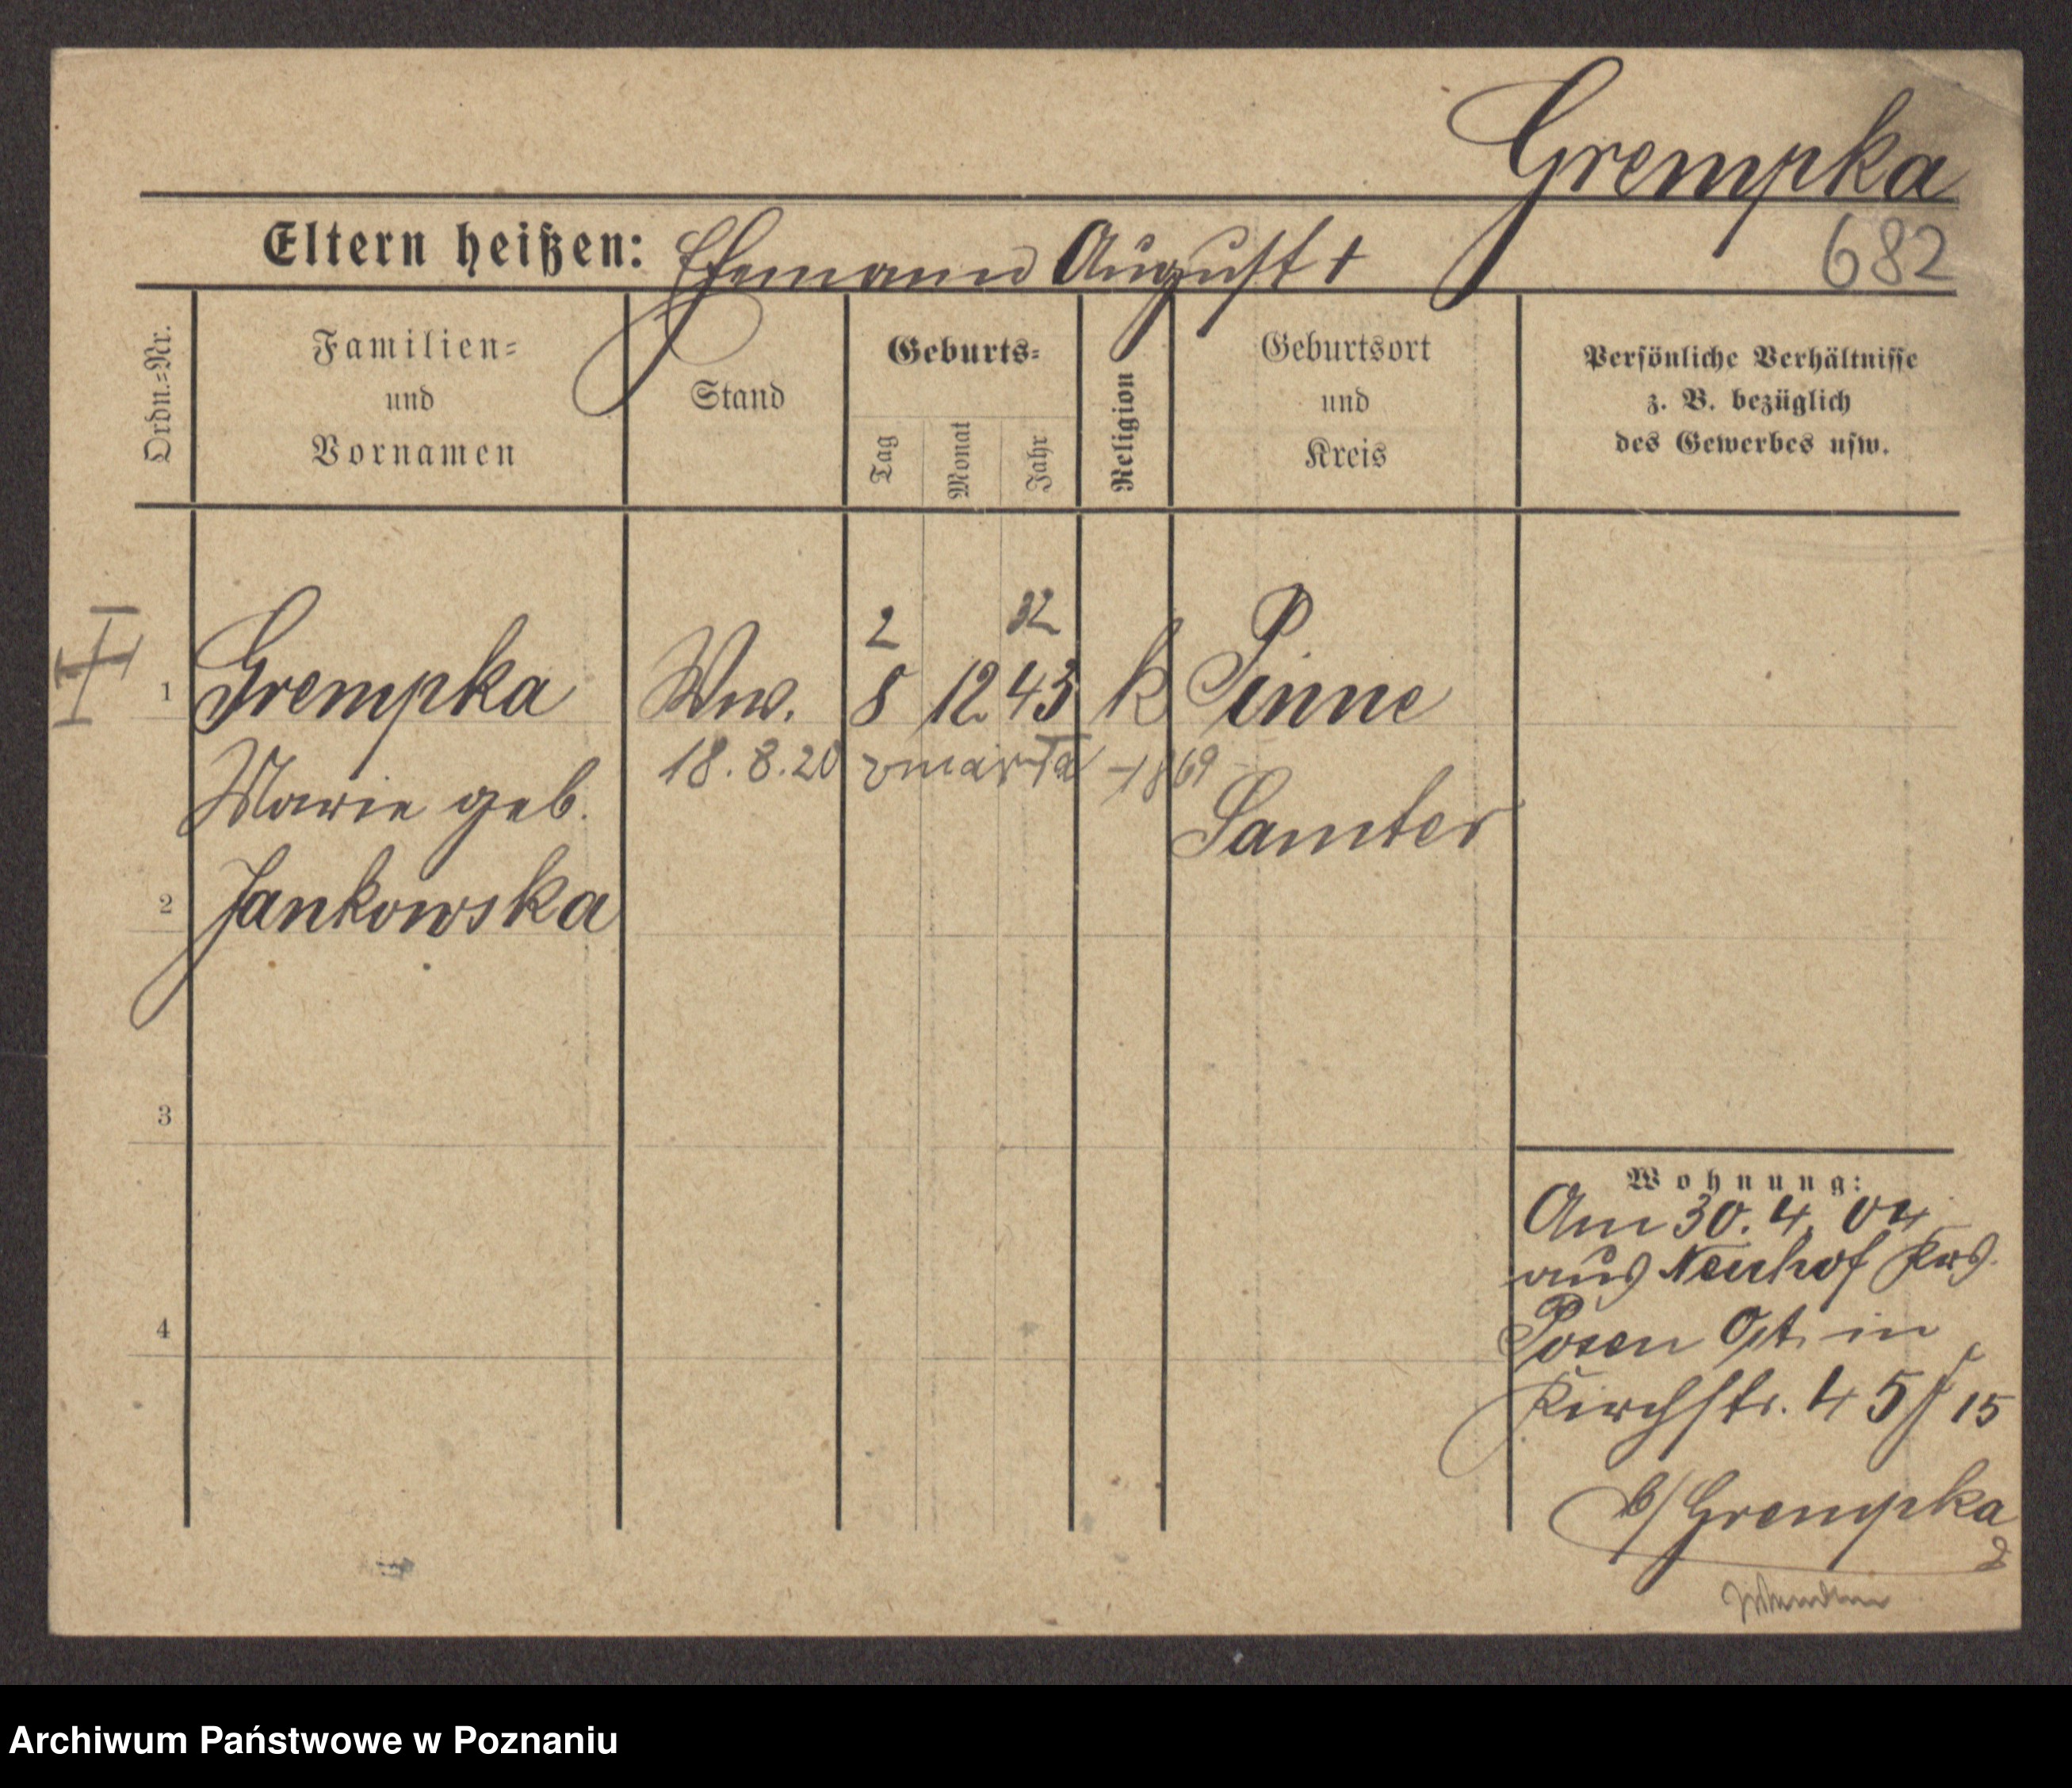 Grempka
682
Eltern heißen: Ehemann August †
Ordn.-Nr.
Familien-
und
Vornamen
Stand
Geburts-
Tag
Monat
Jahr
Religion
Geburtsort
und
Kreis
Persönliche Verhältnisse
z. B. bezüglich
des Gewerbes usw.
2 32
1 Grempka Ww. 8 12. 43 k Pinne
18.8.20 zmarła 1869
Marie geb. Samter
2 Jankowska
3
4
Wohnung:
Am 30. 4. 04
aus Neuhof Krs.
Posen Ost in
Kirchstr. 45 15
b/Grempka
Archiwum Państwowe w Poznaniu